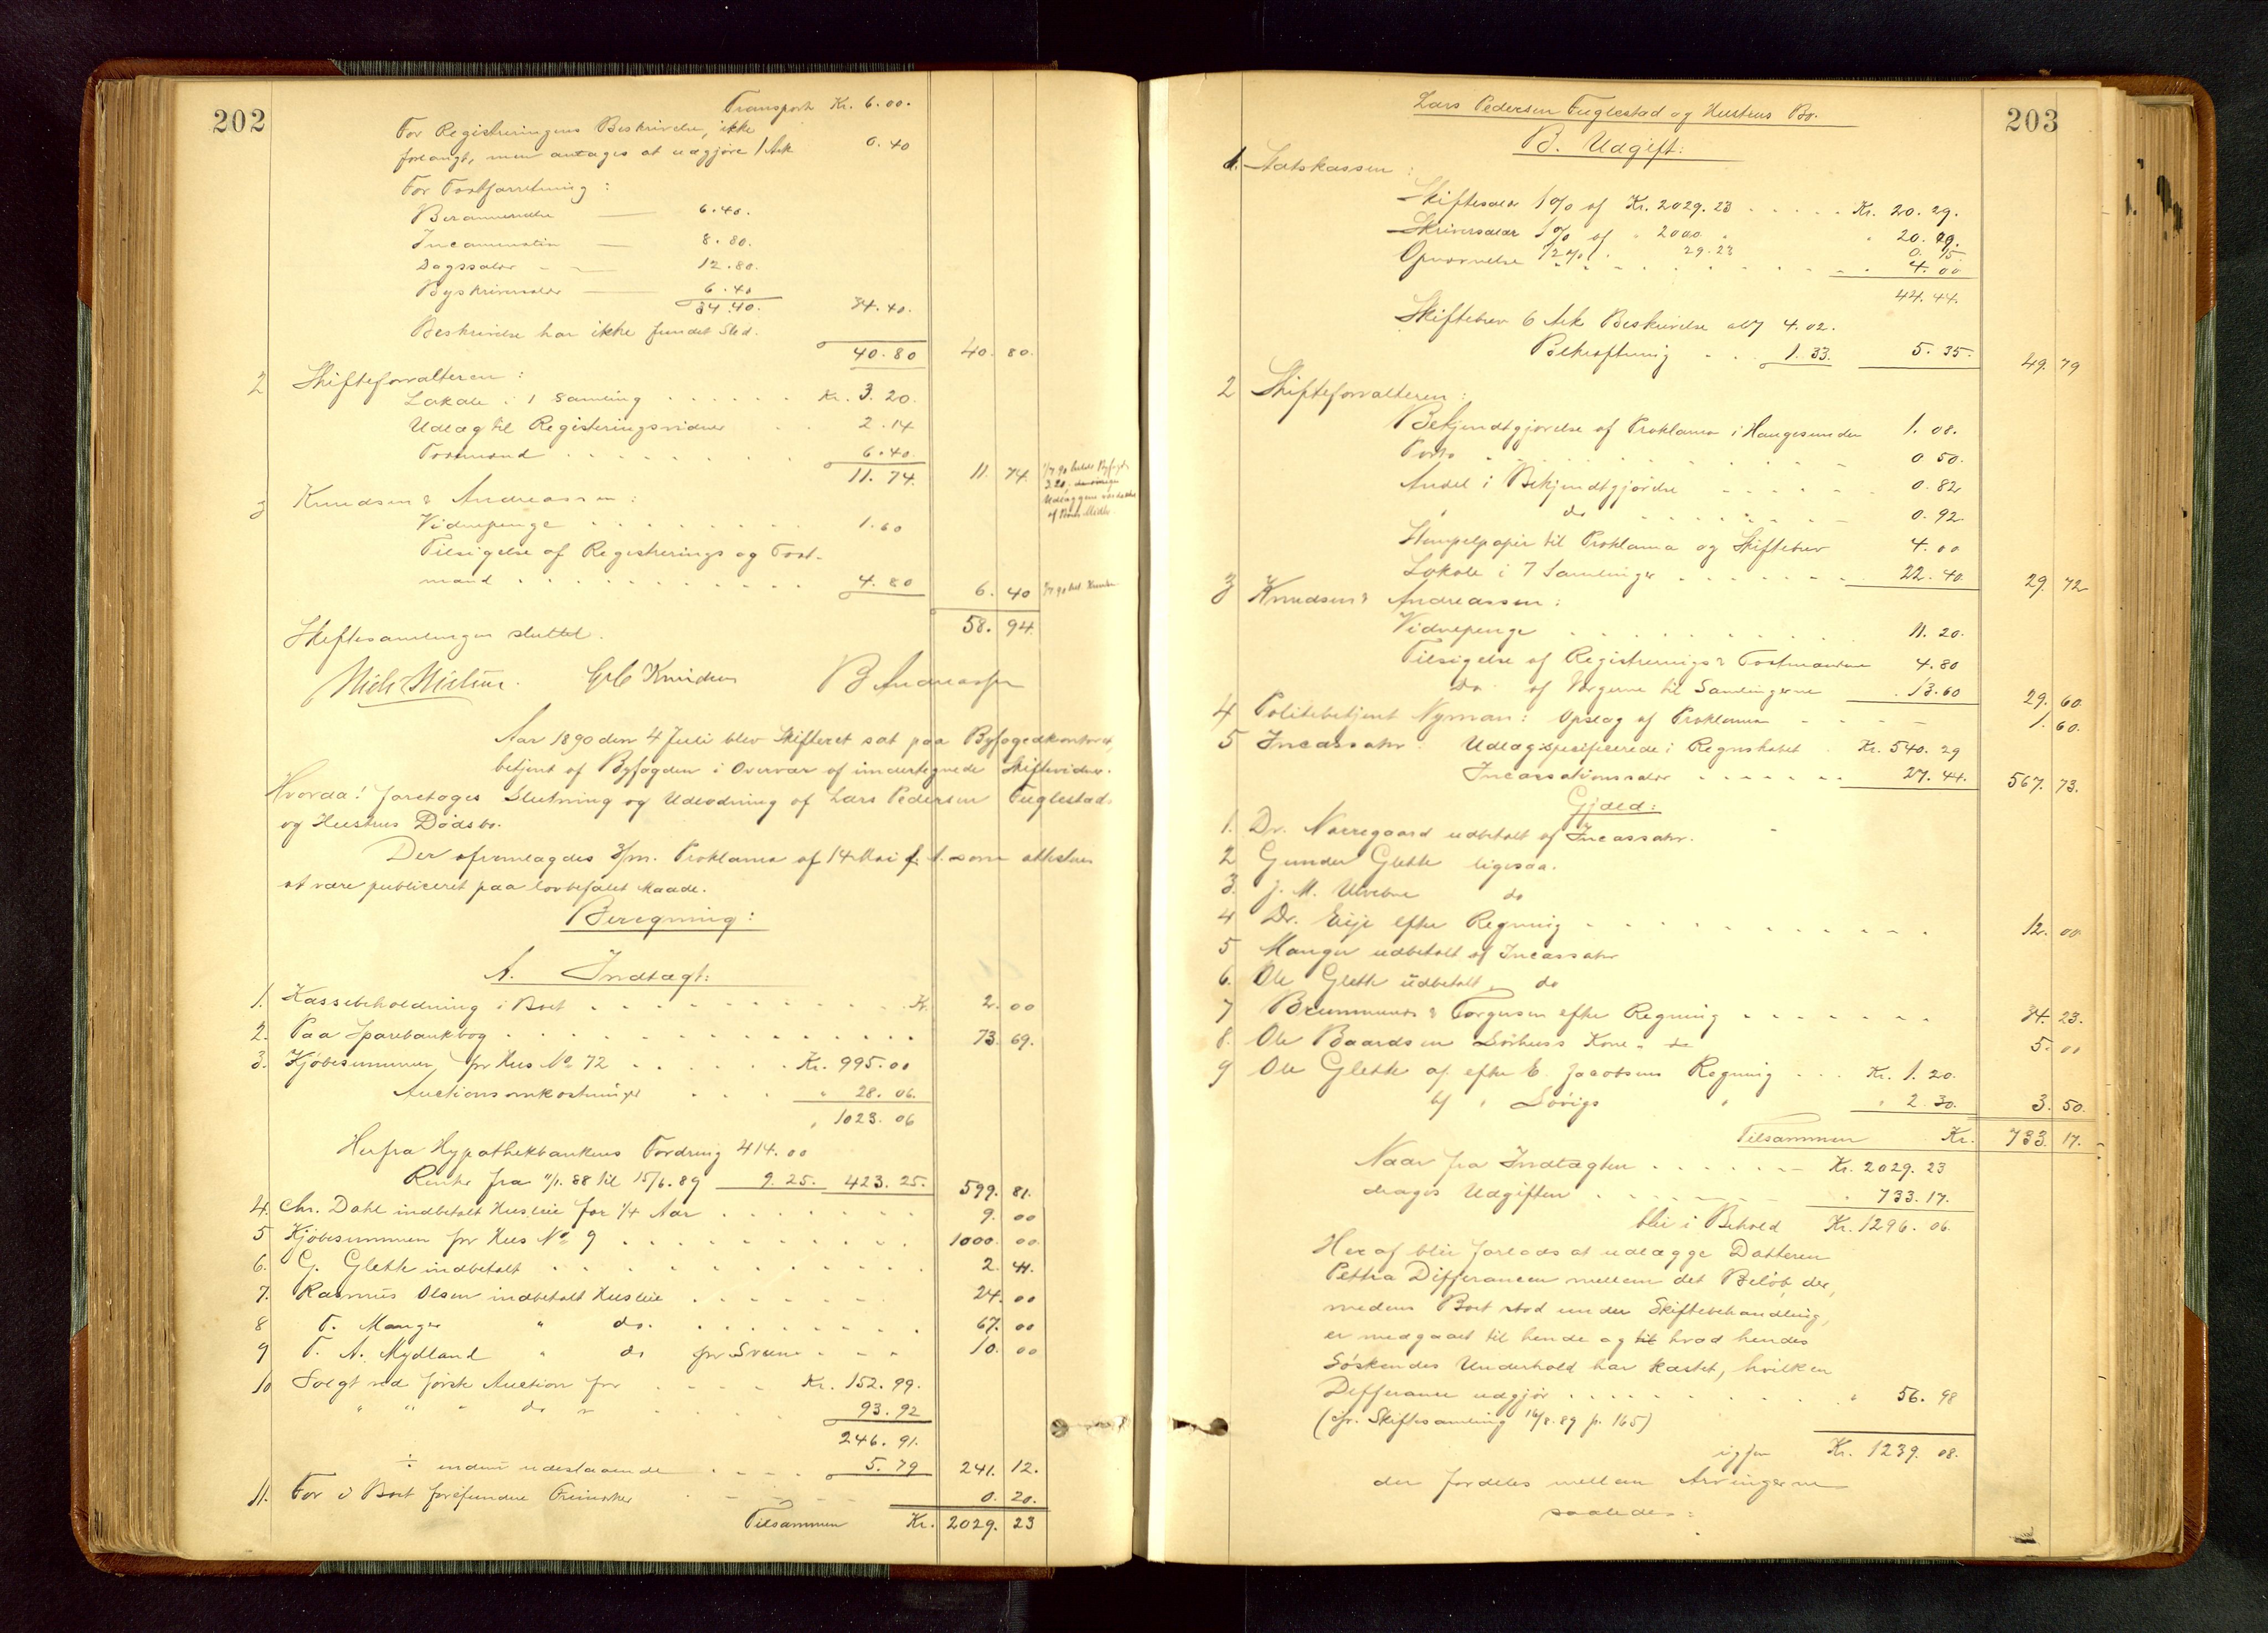 202
Transport Kr. 6.00.
For Registreringens Beskrivelse, ikke
forlangt, men antages at udgjøre 1 Ark 0.40
For Taxtforretning:
Berammelse — 6.40.
Incammination — 8.80.
Dagssalær — 12.80.
Byskriversalær — 6.40
34.40. 34.40.
Beskrivelse har ikke fundet Sted.
40.80 40. 80.
2 Skifteforvalteren:
Lokale i 1 Samling . . . . . . Kr. 3.20.
Udlæg til Registeringsvidner . . 2.14
Taxtmænd . . . . . . . . . 6.40
11.74. 11. 74.
3 Knudsen & Andreassen:
Vidnepenge . . . . . . . . . 1.60
Tilsigelse af Registrerings og Taxt-
mænd . . . . . . . . . . . 4.80 6. 40
58. 94.
Skiftesamlingen sluttet.
B Andreassen
Aar 1890 den 4 Juli blev Skifteret sat paa Byfogedkontoret,
betjent af Byfogden i Overvær af undertegnede Skiftevidner.
Hvorda! foretoges Slutning og Udlodning af Lars Pedersen Fuglestads
og Hustrus Dødsbo.
Der fremlagdes 3/m. Proklama af 14 Mai f. A. som attesteres
at være publiceret paa lovbefalet Maade.
Beregning:
A. Indtægt:
1. Kassebeholdning i Boet . . . . . . . . . . . Kr. 2. 00
2. Paa Sparebankbog . . . . . . . . . . . . . 73. 69.
3. Kjøbesummen for Hus No 72 . . . . . . Kr. 995.00
Auctionsomkostninger . . . . " 28.06.
" 1023.06
Herfra Hypothekbankens Fordring 414.00
Renter fra 11/1.88 til 15/6.89 9.25. 423.25. 599. 81.
4. Chr. Dahl indbetalt Husleie for 1/4 Aar . . . . . . . 9. 00
5 Kjøbesummen for Hus No 9 . . . . . . . . . . 1000. 00.
6. G. Glette indbetalt . . . . . . . . . . . . 2. 41.
7. Rasmus Olsen indbetalt Husleie . . . . . . . 24. 00
8 T. Manger " do. . . . . . . . . 67. 00
9 T. A. Mydland " do for Svend . . . 10. 00
10 Solgt ved første Auction for . . . . Kr. 152.99.
" " " do " . . . . . 93.92
246.91.
÷ endnu udestaaende . . . . 5.79 241. 12.
11. For i Boet forefundne Frimærker . . . . 0. 20.
Tilsammen Kr. 2029. 23
203
Lars Pedersen Fuglestad og Hustrus Bo.
B. Udgift:
1. Statskassen:
Skiftesalær 1% af Kr. 2029.23 . . . . . Kr. 20.29.
Skriversalær 1% af " 2000. " 20.29.
1/2% " 29.23 0.15
Opnævnelse . . . . . . . . . 4.00
44.44.
Skiftebrev 6 Ark Beskrivelse 4.02.
Bekræftning . . . 1.33. 5.35. 49. 79
2 Skifteforvalteren:
Bekjendtgjørelse af Proklama i Haugesunderen 1.08.
Porto . . . . . . . . . . . . 0.50.
Andel i Bekjendtgjørelse . . . . . . 0.82
" do . . . . . . . 0.92
Stempelpapir til Proklama og Skiftebrev 4.00
Lokale i 7 Samlinger . . . . . . . 22.40. 29. 72
3 Knudsen & Andreassen:
Vidnepenge . . . . . . . . . . . 11.20.
Tilsigelse af Registrerings & Taxtmændene 4.80
do af Vergerne til Samlingerne 13.60 29. 60.
4 Politibetjent Nyman: Opslag af Proklama . . . . 1. 60.
5 Incassator: Udlæg specificerede i Regnskabet . Kr. 540.29
Incassationssalær . . . . . . . 27.44. 567. 73.
Gjæld:
1. Dr. Nørregaard udbetalt af Incassator.
2 Gunder Glette ligesaa.
3. J. M. do
4 Dr. Eije efter Regning . . . . . . . . . . . 12. 00
5 Manger udbetalt af Incassator
6. Ole Glette udbetalt " do
7 Brummenæs & Torgersen efter Regning . . . . . . . 34. 23.
8. Ole Baardsen Sørhuss Kone " do 5. 00
9 Ole Glette af efter E. Jacobsens Regning . . . Kr. 1.20.
" 2.30. 3. 50.
Tilsammen Kr. 733. 17.
Naar fra Indtægten . . . . . . . Kr. 2029.23
drages Udgiften . . . . . . . " 733.17.
blir i Behold Kr. 1296.06.
Heraf blir forlods at udlægge Datteren
Petha Differancen mellem det Beløb, der,
medens Boet stod under Skiftebehandling,
er medgaaet til hende og til hvad hendes
Søskendes Underhold har kostet, hvilken
Differance udgjør . . . . . . . . . " 56.98
(cfr. Skiftesamling 16/8.89 p. 165)
igjen Kr. 1239.08.
der fordeles mellem Arvingerne
saaledes: